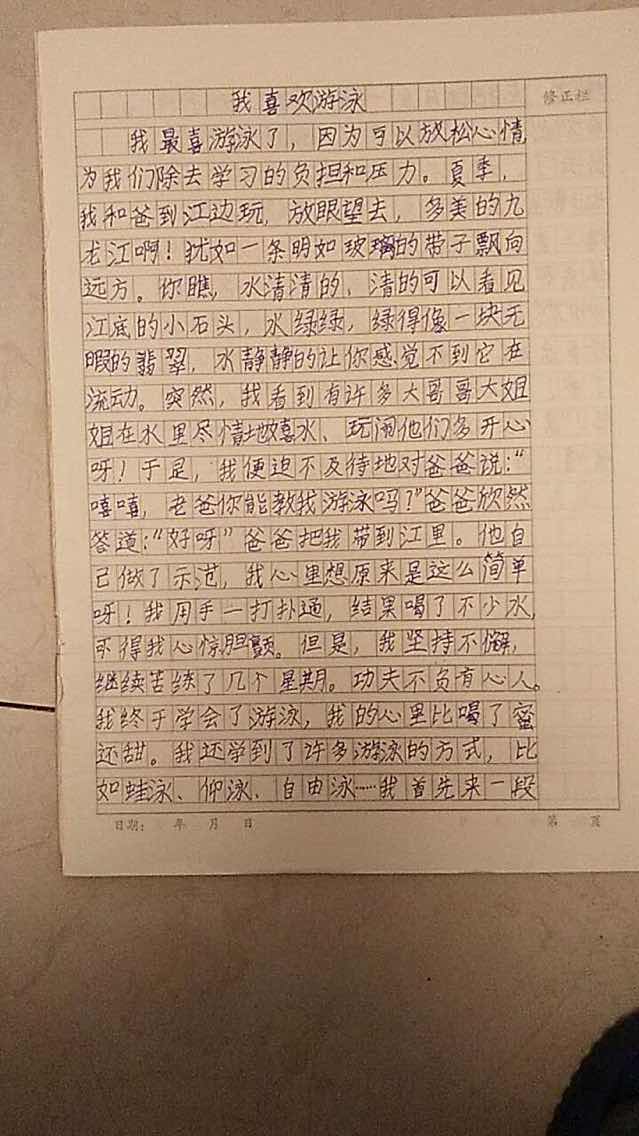 我喜欢游泳
修正栏
我最喜游泳了，因为可以放松心情，
为我们除去学习的负担和压力。夏季，
我和爸到江边玩，放眼望去，多美的九
龙江啊！犹如一条明如玻璃的带子飘向
远方。你瞧，水清清的，清的可以看见
江底的小石头，水绿绿，绿得像一块无
暇的翡翠，水静静的让你感觉不到它在
流动。突然，我看到有许多大哥哥大姐
姐在水里尽情地嬉水、玩闹他们多开心
呀！于是，我便迫不及待地对爸爸说：“
嘻嘻，老爸你能教我游泳吗？”爸爸欣然
答道：“好呀”爸爸把我带到江里。他自
己做了示范，我心里想原来是这么简单
呀！我用手一打扑通，结果喝了不少水，
不得我心惊胆颤。但是，我坚持不懈，
继续苦练了几个星期。功夫不负有心人。
我终于学会了游泳，我的心里比喝了蜜
还甜。我还学到了许多游泳的方式，比
如蛙泳、仰泳、自由泳……我首先来一段
日期： 年 月 日 第 页